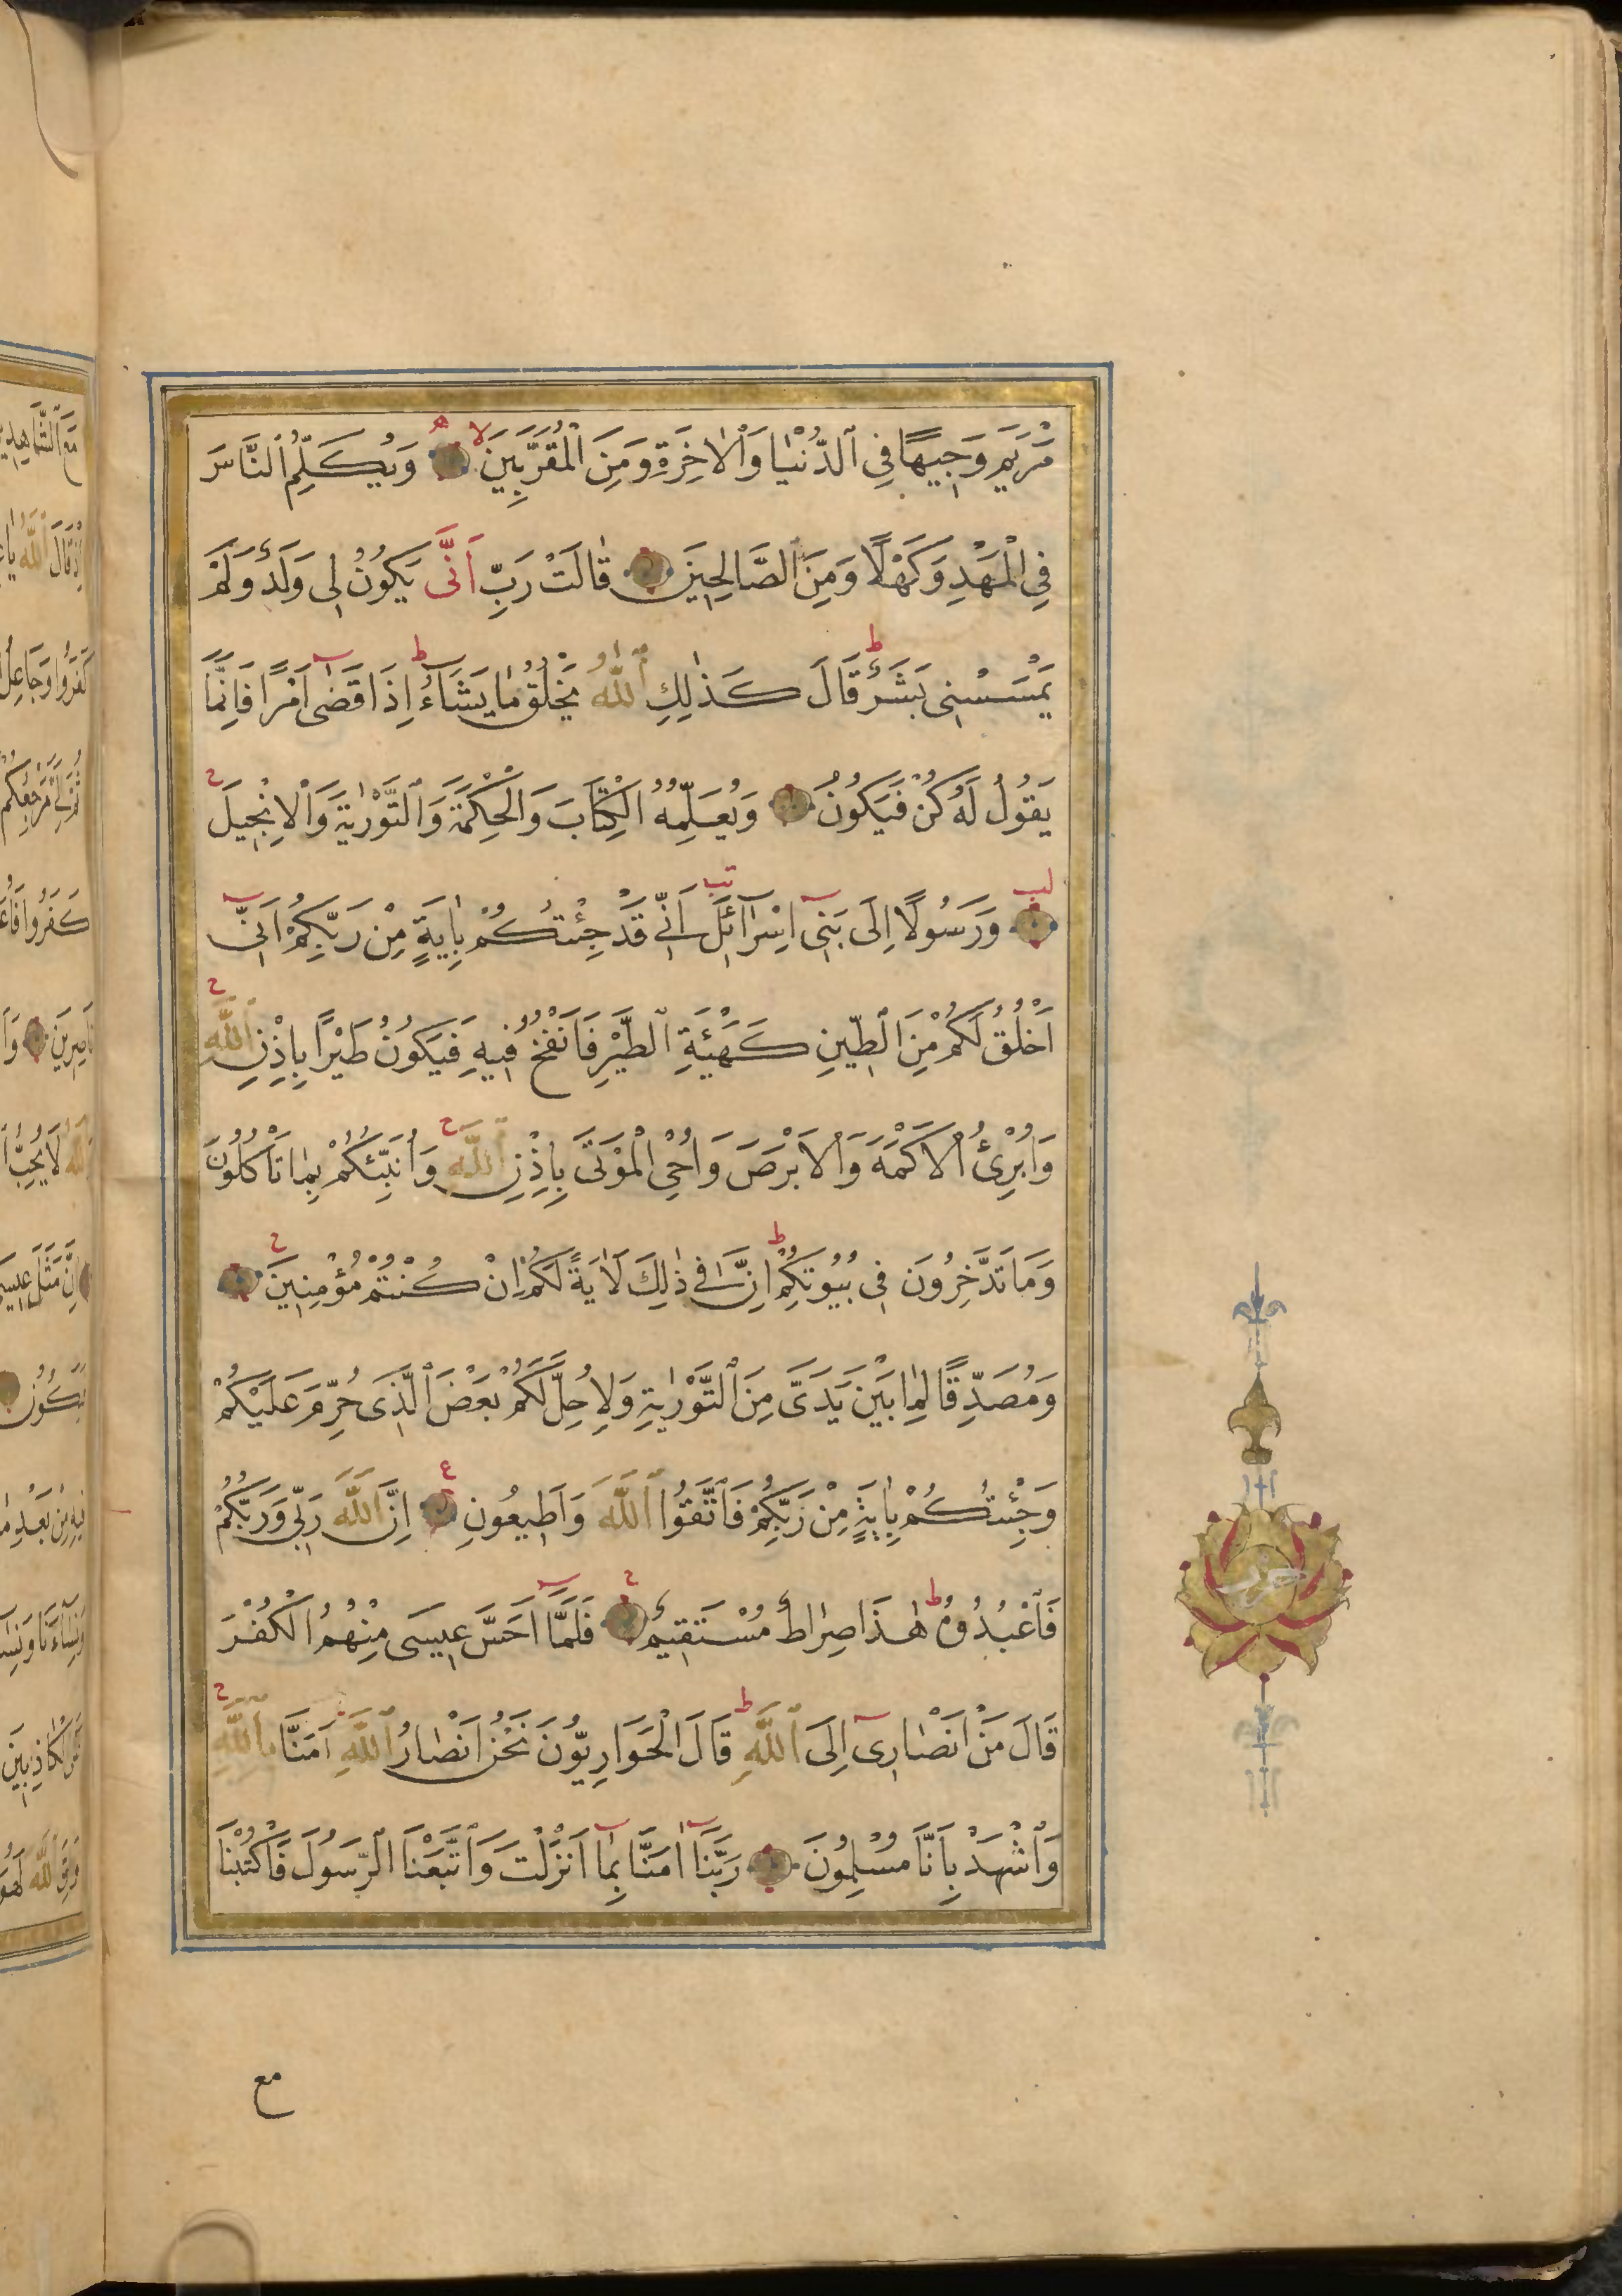 مَرْيَمَ وَجِيهًا فِي ٱلدُّنْيَا وَٱلْاٰخِرَةِ وَمِنَ الْمُقَرَّبِينَ لا ه وَيُكَلِّمُ النَّاسَ
فِي الْمَهْدِ وَكَهْلًا وَمِنَ ٱلصَّالِحِينَ قٰالَتْ رَبِّ اَنّٰى يَكُونُ لِى وَلَدٌ وَلَمْ
يَمْسَسْنِى بَشَرٌ ط قَالَ كَذٰلِكِ ٱللّٰهُ يَخْلُقُ مٰا يَشَآءُ ط اِذَا قَضٰٓى اَمْرًا فَاِنَّمَا
يَقُولُ لَهُ كُنْ فَيَكُونُ وَيُعَلِّمُهُ الْكِتَابَ وَالْحِكْمَةَ وَٱلتَّوْرٰيةَ وَٱلْاِنْجِيلَ ح
لب وَرَسُولًا اِلَى بَنِىٓ اِسْرَآئِلَ تب اَنِّى قَدْ جِئْتُكُمْ بِاٰيَةٍ مِنْ رَبِّكُمْ اَنِّىٓ
اَخْلُقُ لَكُمْ مِنَ ٱلطِّينِ كَهَيْئَةِ ٱلطَّيْرِ فَاَنْفُخُ فِيهِ فَيَكُونُ طَيْرًا بِاِذْنِ ٱللّٰهِ ح
وَاُبْرِئُ الْاَكْمَهَ وَالْاَبْرَصَ وَاُحْيِ الْمَوْتَى بِاِذْنِ ٱللّٰهِ ح وَاُنَبِّئُكُمْ بِمٰا تَأْكُلُونَ
وَمَا تَدَّخِرُونَ فِى بُيُوتِكُمْ ط اِنَّ فِى ذٰلِكَ لَاٰيَةً لَكُمْ اِنْ كُنْتُمْ مُؤْمِنِينَ ح
وَمُصَدِّقًا لِمٰا بَيْنَ يَدَىَّ مِنَ ٱلتَّوْرٰيةِ وَلِاُحِلَّ لَكُمْ بَعْضَ ٱلَّذِى حُرِّمَ عَلَيْكُمْ
وَجِئْتُكُمْ بِاٰيَةٍ مِنْ رَبِّكُمْ فَاَتَّقُوا ٱللّٰهَ وَاَطِيعُونِ ع اِنَّ ٱللّٰهَ رَبِّى وَرَبُّكُمْ
فَٱعْبُدُوهُ ط هٰذَا صِرٰاطٌ مُسْتَقِيمٌ ح فَلَمَّآ اَحَسَّ عِيسَى مِنْهُمُ الْكُفْرَ
قَالَ مَنْ اَنْصٰارِىٓ اِلَى ٱللّٰهِ ط قَالَ الْحَوَارِيُّونَ نَحْنُ اَنْصٰارُ ٱللّٰهِ اٰمَنَّا بِٱللّٰهِ ح
وَٱشْهَدْ بِاَنَّا مُسْلِمُونَ رَبَّنَآ اٰمَنَّا بِمٰٓا اَنْزَلْتَ وَٱتَّبَعْنَا ٱلرَّسُولَ فَاكْتُبْنَا
مع